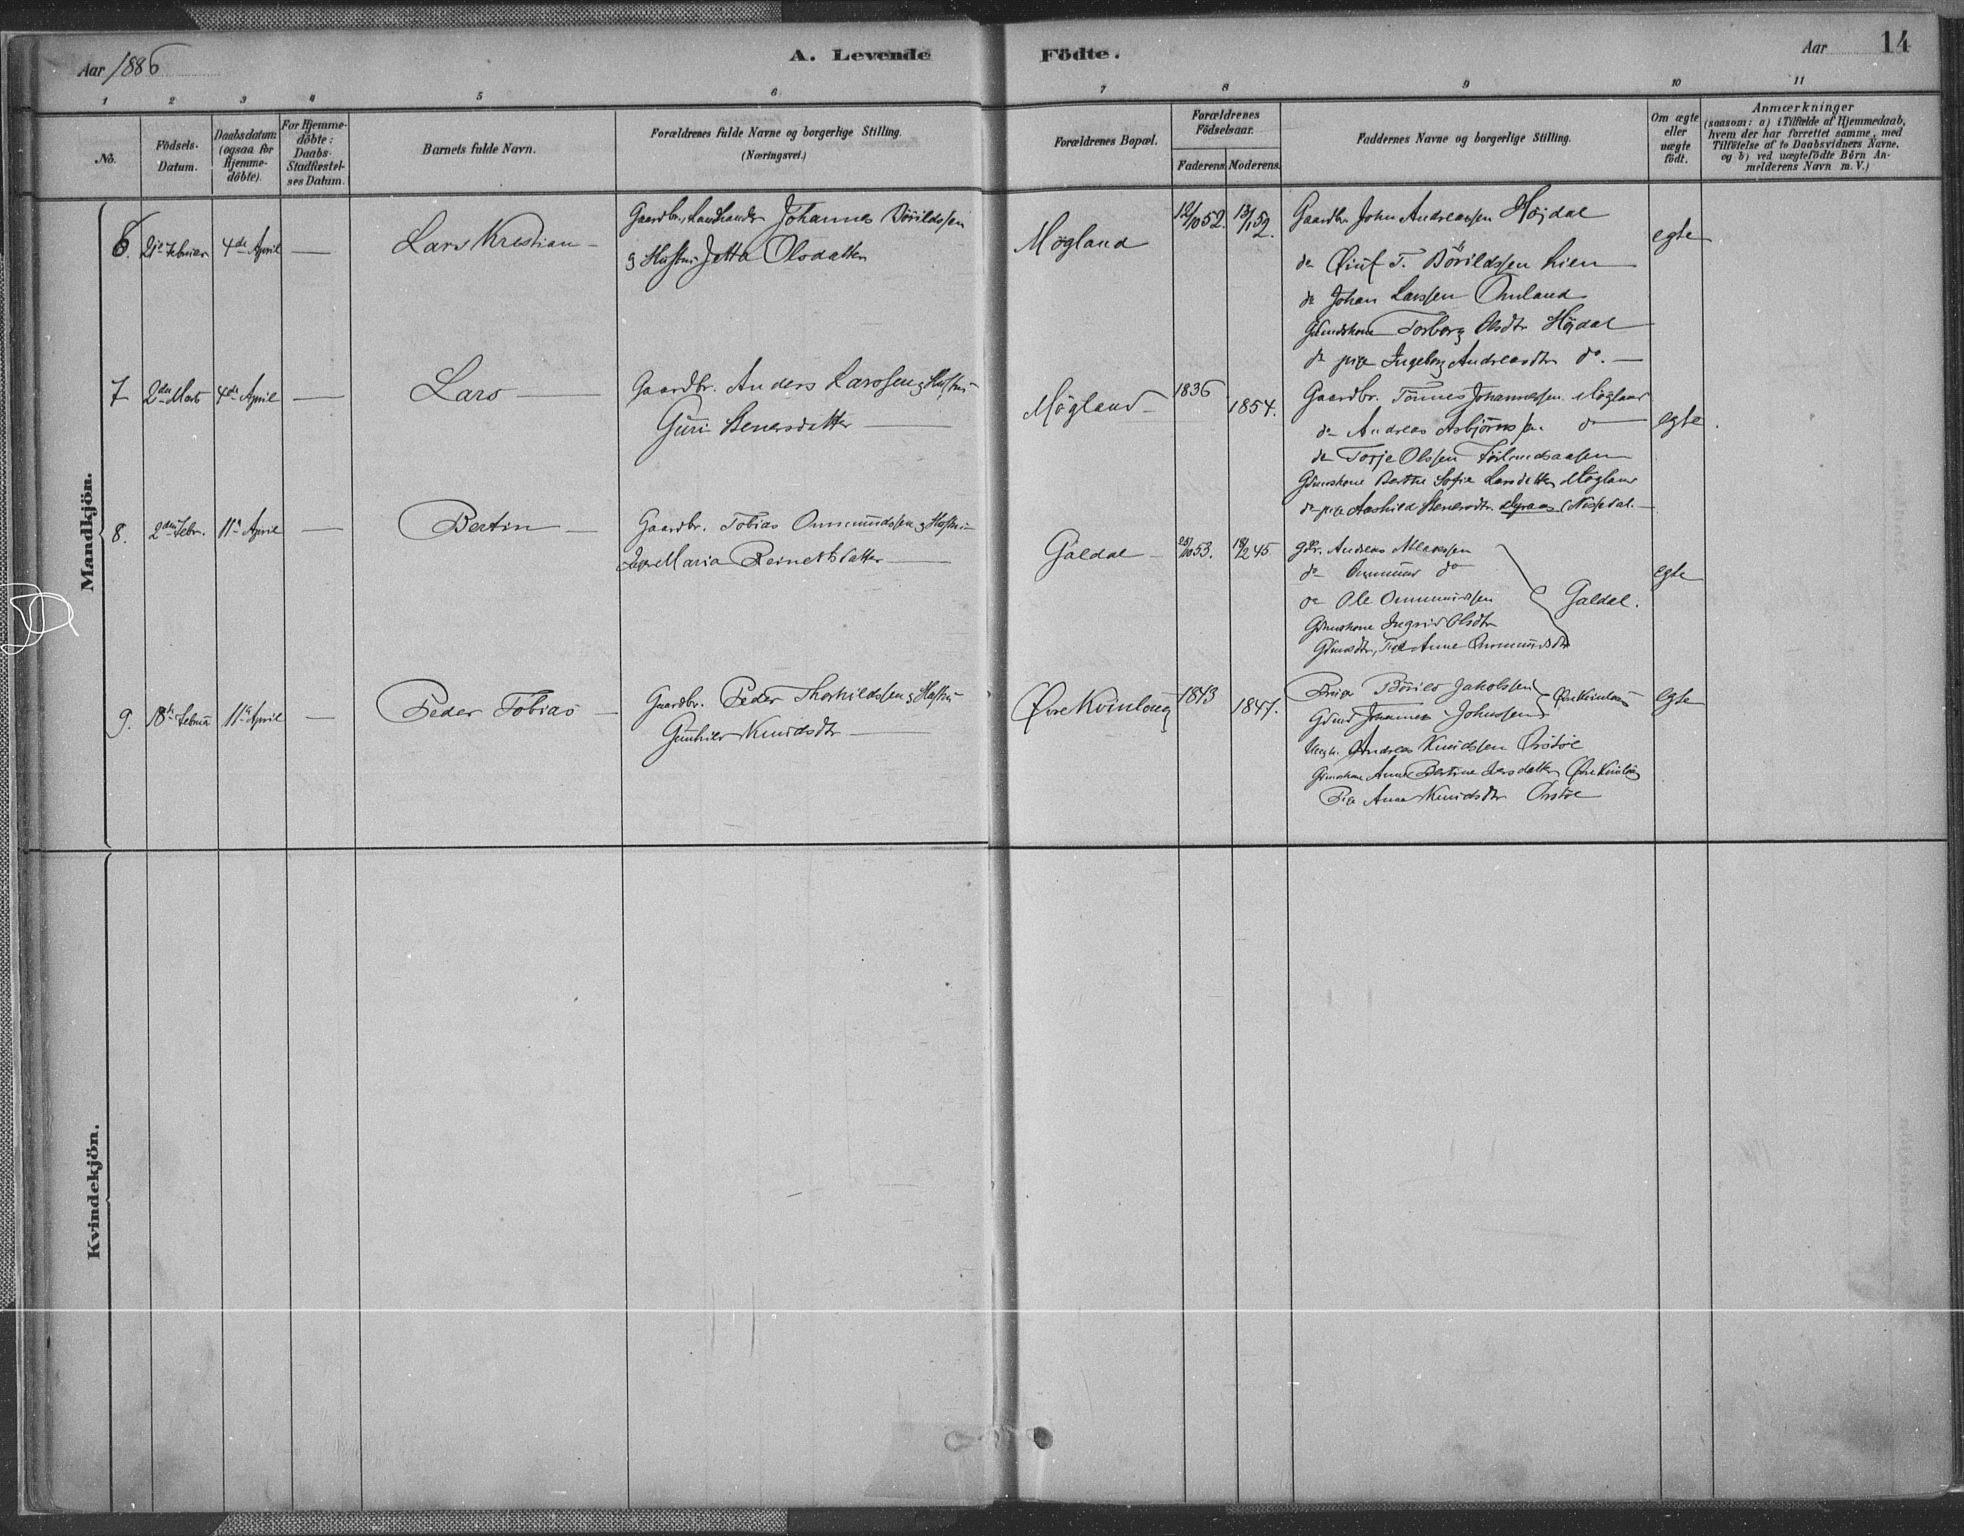 Aar 1886
A. Levende
Födte.
Aar
14
1 2 3 4 5 6 7 8 9 10 11
No.
Födsels-
Datum.
Daabsdatum
(ogsaa for
Hjemme-
döbte).
For Hjemme-
döbte:
Daabs-
Stadfæstel-
ses Datum.
Barnets fulde Navn.
Forældrenes fulde Navne og borgerlige Stilling.
(Næringsvei.)
Forældrenes Bopæl.
Forældrenes
Födselsaar.
Faderens. Moderens.
Faddernes Navne og borgerlige Stilling.
Om ægte
eller
uægte
födt.
Anmærkninger
(saasom: a) i Tilfælde af Hjemmedaab,
hvem der har forrettet samme, med
Tilföielse af to Daabsvidners Navne.
og b) ved uægtefödte Börn An-
melderens Navn m. V.)
Mandkjön.
6. 4de April — Lars Kristian —
Gaardbr., Landhandr Johannes
g Hustru Jetta Olsdatter
Møgland
12/10 52. 13/1 52.
Gaardbr John Andreassen Højdal
do T. Børildssen Lien
do Johan Larssen Omland
Gdmdskone Torborg Olsdtr Højdal
do pige Ingeborg Andreasdtr do. —
egte
7 2den Marts 4de April — Lars —
Gaardbr. Anders Larssen g Hustru
Guri Stenersdatter —
Møgland —
1836 1854.
Gaardbr. Tönnes Johannessen Møgland
do Andreas Asbjörnss. do
do Torje Olssen
Gdmdskone Berthe Sofie Larsdatter Møgland
do pige Aashild Stenersdtr. (Nosedal. —
egte
8. 2den Febr. 11te April — Bertin —
Gaardbr. Tobias Ommundssen g Hustru
Maria Reinertsdatter —
Galdal —
53. 18/2 45
Gdbr. Andreas
do Ommund do
do Ole Ommundssen
Gdmdskone Ingrid Olsdtr
Gdmdsdtr, Anne Ommundsdtr
Galdal.
egte
9. 18de Februar 11te April — Peder Tobias —
Gaardbr. Peder Thorkildssen g Hustru
Gunhild Knudsdtr —
Øvre Kvinlaug
1843 1847.
Børild Jakobssen
Gdmd Johannes Johnssen
Øvre Kvinlaug
Ungk. Andreas Knudssen
Gdmdskone Anne Bertine Øvre Kvinlaug
Pige Anna Knudsdtr
egte
Kvindekjön.